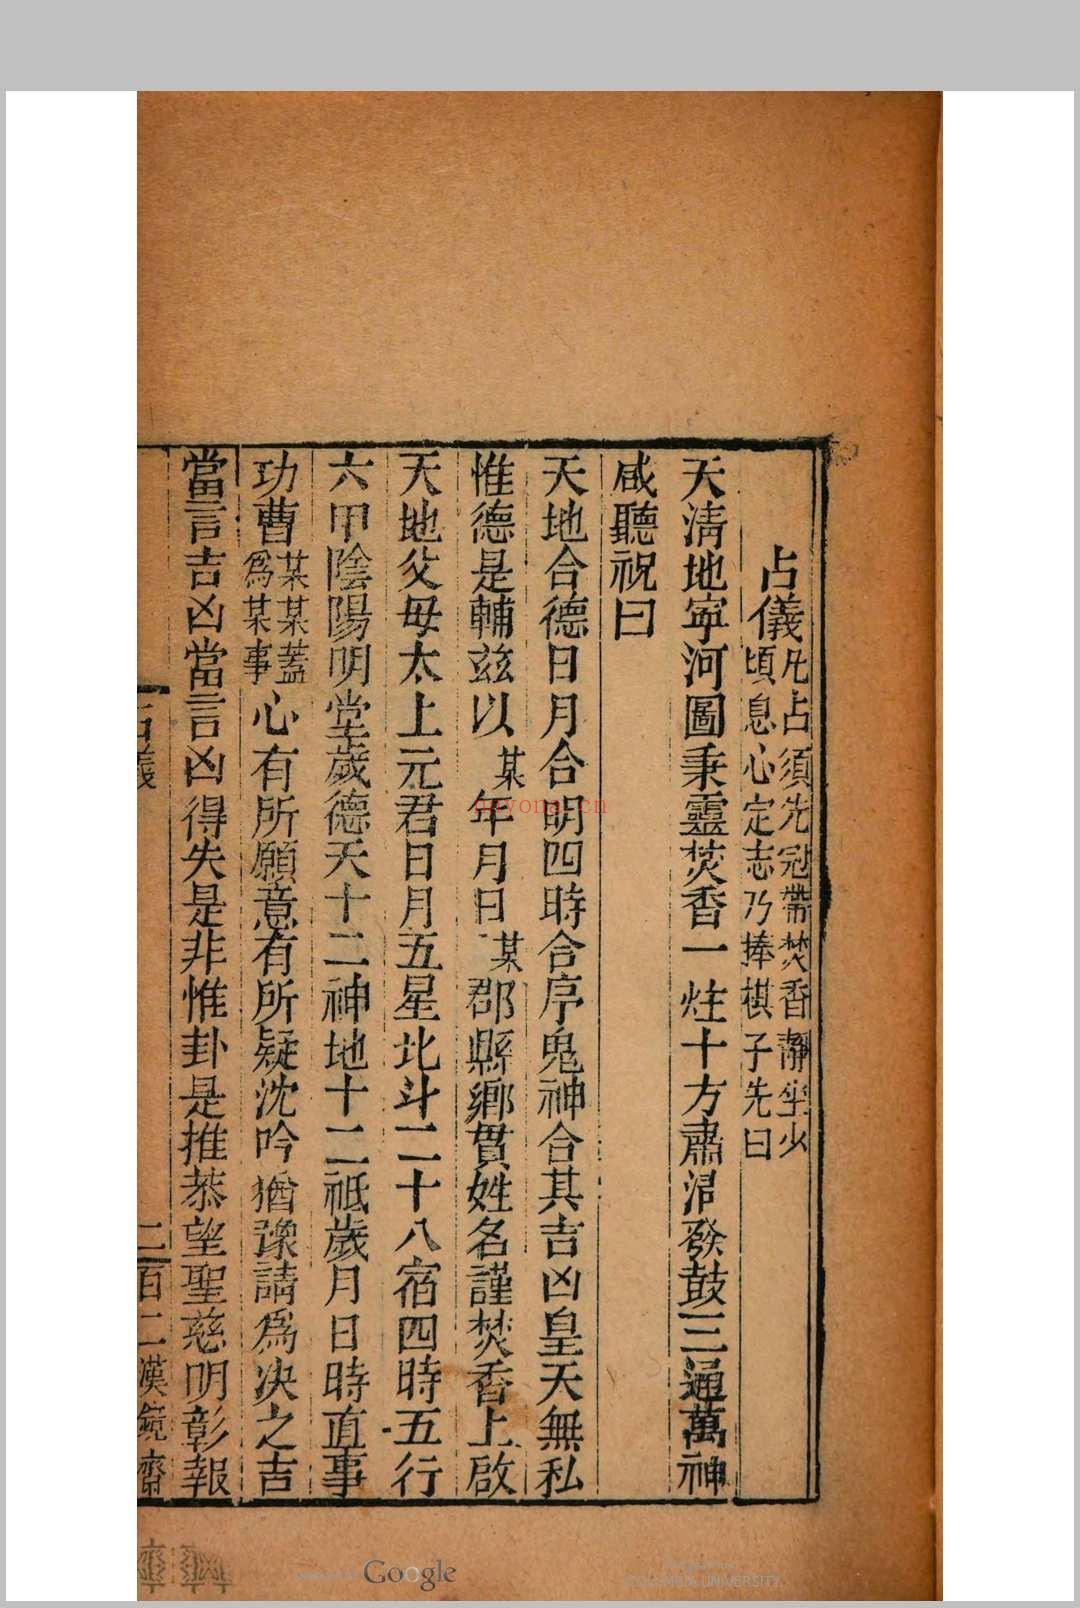 占儀凡占須先冠帶焚香靜坐少
頃息心定志乃捧棋子先曰
天清地寧河圖秉靈焚香一炷十方肅清發鼓三通萬神
咸聽祝曰
天地合德日月合明四時合序鬼神合其吉凶皇天無私
惟德是輔茲以某年月日某郡縣鄉貫姓名謹焚香上啟
天地父母太上元君日月五星北斗二十八宿四時五行
六甲陰陽明堂歲德天十二神地十二祇歲月日時直事
功曹某某蓋
為某事心有所願意有所疑沈吟猶豫請為决之吉
當言吉凶當言凶得失是非惟卦是推恭望聖慈明彰報
占儀
二百二漢鏡齋
nayona.cn
Google
COLUMBIA UNIVERSITY